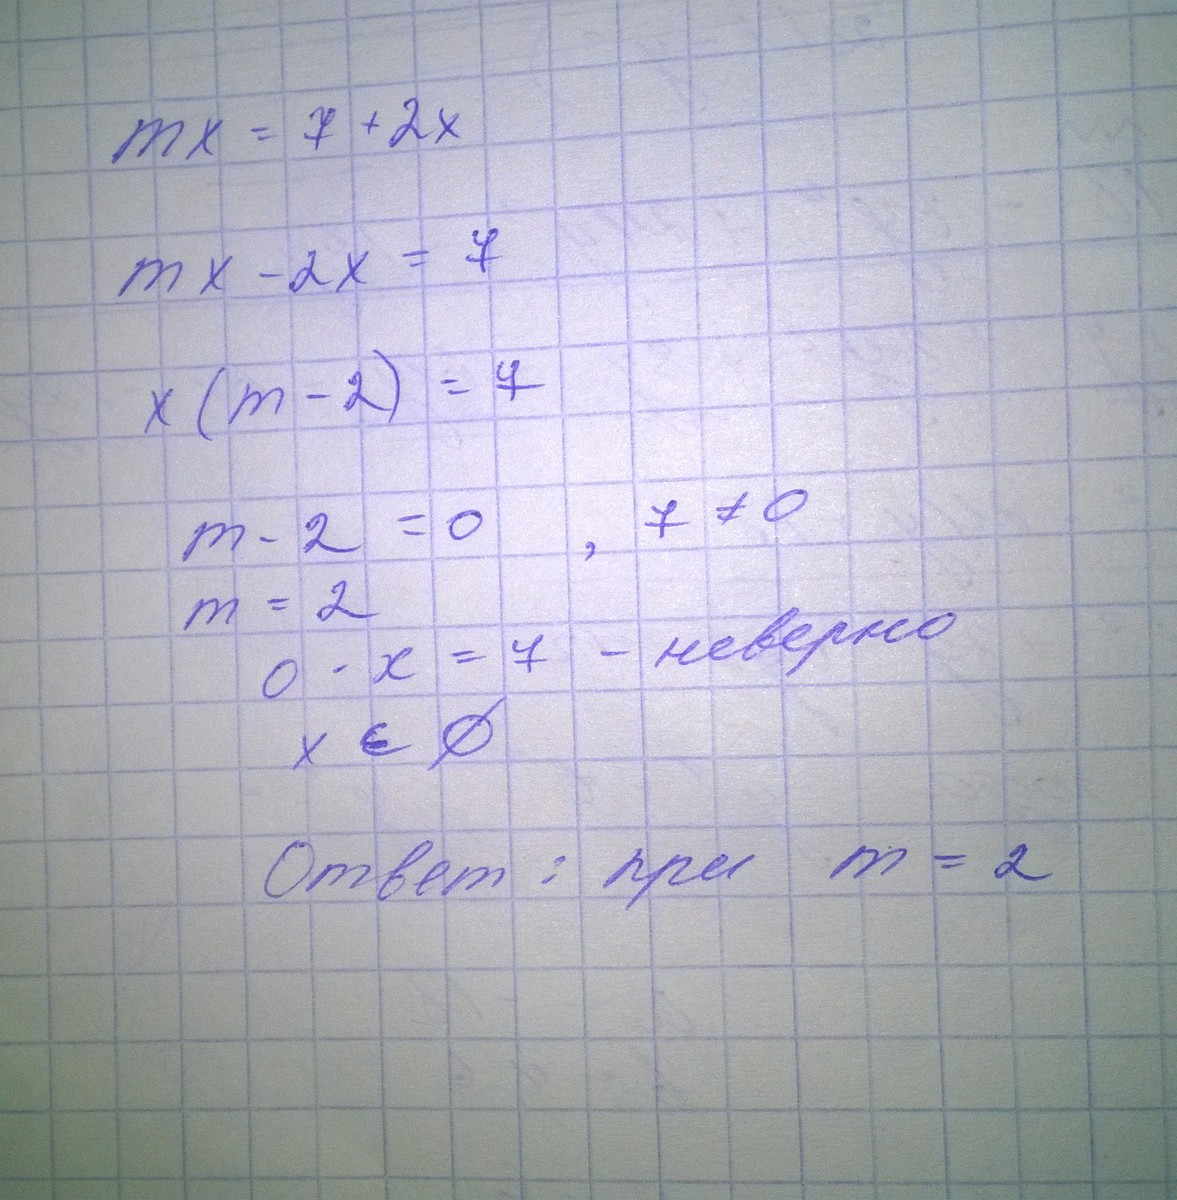 mx = 7 + 2x
mx - 2x = 7
x (m - 2) = 7
m - 2 = 0 , 7 ≠ 0
m = 2
0 · x = 7 - неверно
x ∈ ∅
Ответ : при m = 2